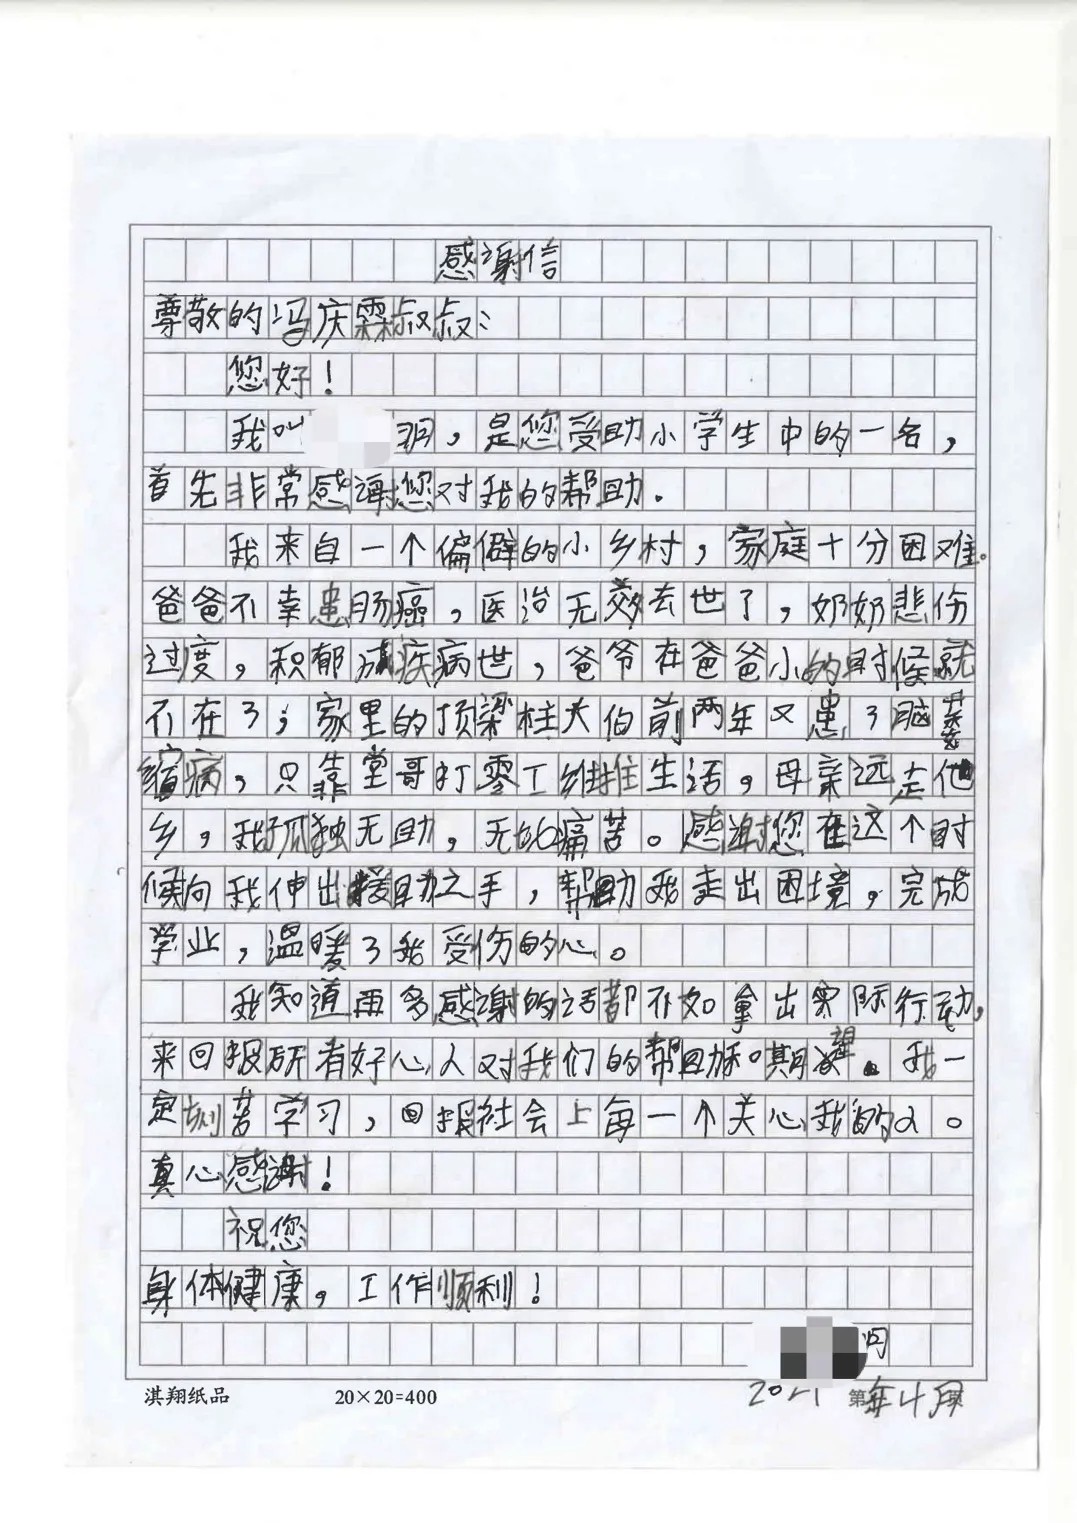 感谢信
尊敬的冯庆霖叔叔：
您好！
我叫 明，是您受助小学生中的一名，
首先非常感谢您对我的帮助。
我来自一个偏僻的小乡村，家庭十分困难。
爸爸不幸患肠癌，医治无效去世了，奶奶悲伤
过度，积郁成疾病世，爸爷在爸爸小的时候就
不在了；家里的顶梁柱大伯前两年又患了脑萎
缩病，只靠堂哥打零工维持生活，母亲远走他
乡，我孤独无助，无比痛苦。感谢您在这个时
候向我伸出援助之手，帮助我走出困境，完成
学业，温暖了我受伤的心。
我知道再多感谢的话都不如拿出实际行动，
来回报所有好心人对我们的帮助和期望。我一
定刻苦学习，回报社会上每一个关心我的人。
真心感谢！
祝您
身体健康，工作顺利！
2021年4月
淇翔纸品 20×20=400